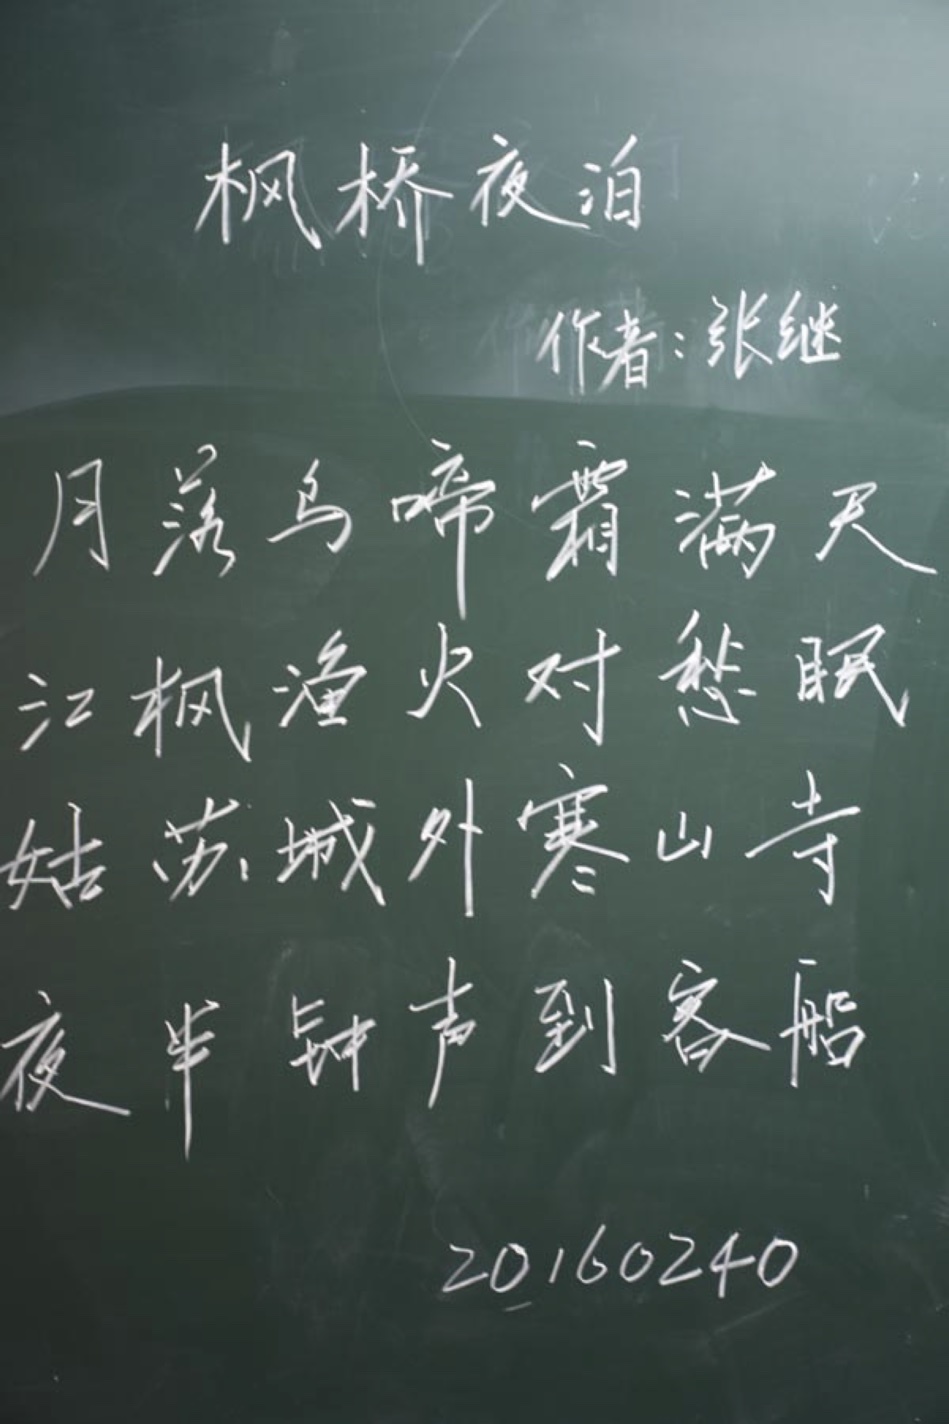 枫桥夜泊
作者:张继
月落乌啼霜满天
江枫渔火对愁眠
姑苏城外寒山寺
夜半钟声到客船
20160240